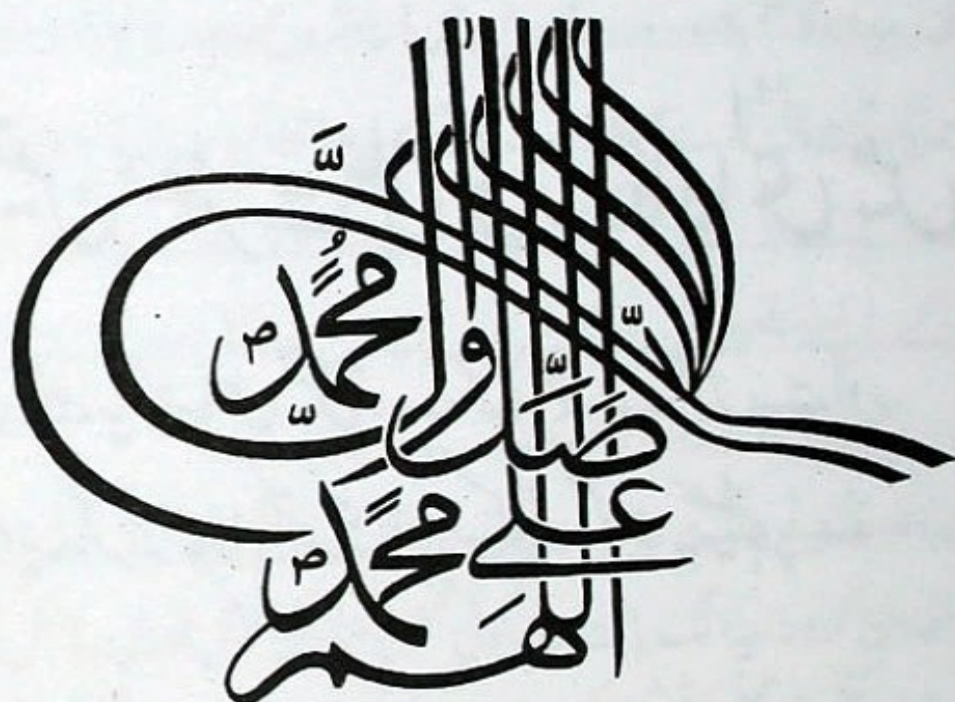 اللهم
صَلِّ
على محمّد
وال محمّد